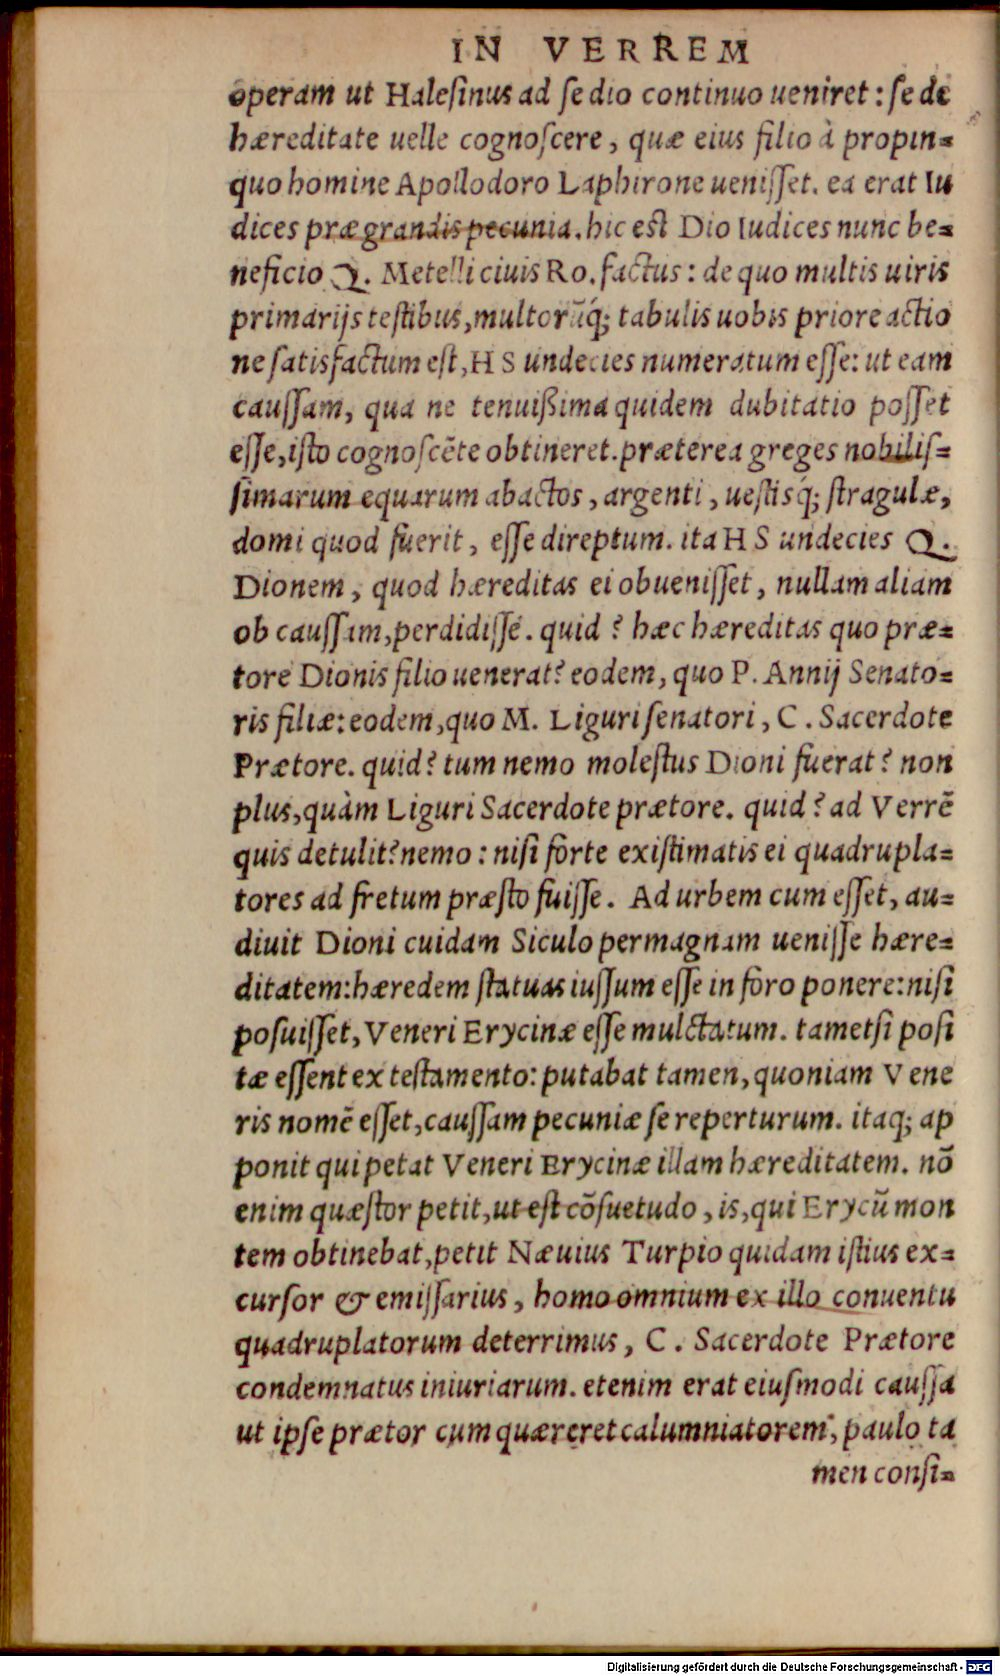 IN VERREM
operam ut Halesinus ad se dio continuo ueniret : se de
hæreditate uelle cognoscere, quæ eius filio à propin-
quo homine Apollodoro Laphirone uenisset. ea erat Iu
dices prægrandis pecunia. hic est Dio Iudices nunc be-
neficio Q. Metelli ciuis Ro. factus : de quo multis uiris
primarijs testibus, multorũq́; tabulis uobis priore actio
ne satisfactum est, HS undecies numeratum esse: ut eam
caussam, qua ne tenuißima quidem dubitatio posset
esse, isto cognoscẽte obtineret. præterea greges nobilis-
simarum equarum abactos, argenti, uestisq́; stragulæ,
domi quod fuerit, esse direptum. ita HS undecies Q.
Dionem, quod hæreditas ei obuenisset, nullam aliam
ob caussam, perdidisse. quid ? hæc hæreditas quo præ-
tore Dionis filio uenerat? eodem, quo P. Annij Senato-
ris filiæ: eodem, quo M. Liguri senatori, C. Sacerdote
Prætore. quid? tum nemo molestus Dioni fuerat? non
plus, quàm Liguri Sacerdote prætore. quid? ad Verrẽ
quis detulit? nemo : nisi forte existimatis ei quadrupla-
tores ad fretum præsto fuisse. Ad urbem cum esset, au-
diuit Dioni cuidam Siculo permagnam uenisse hære-
ditatem: hæredem statuas iussum esse in foro ponere: nisi
posuisset, Veneri Erycinæ esse mulctatum. tametsi posi
tæ essent ex testamento: putabat tamen, quoniam Vene
ris nomẽ esset, caussam pecuniæ se reperturum. itaq; ap
ponit qui petat Veneri Erycinæ illam hæreditatem. nõ
enim quæstor petit, ut est cõsuetudo, is, qui Erycũ mon
tem obtinebat, petit Næuius Turpio quidam istius ex-
cursor & emissarius, homo omnium ex illo conuentu
quadruplatorum deterrimus, C. Sacerdote Prætore
condemnatus iniuriarum. etenim erat eiusmodi caussa
ut ipse prætor cum quæreret calumniatorem, paulo ta
men consi-
Digitalisierung gefördert durch die Deutsche Forschungsgemeinschaft - DFG